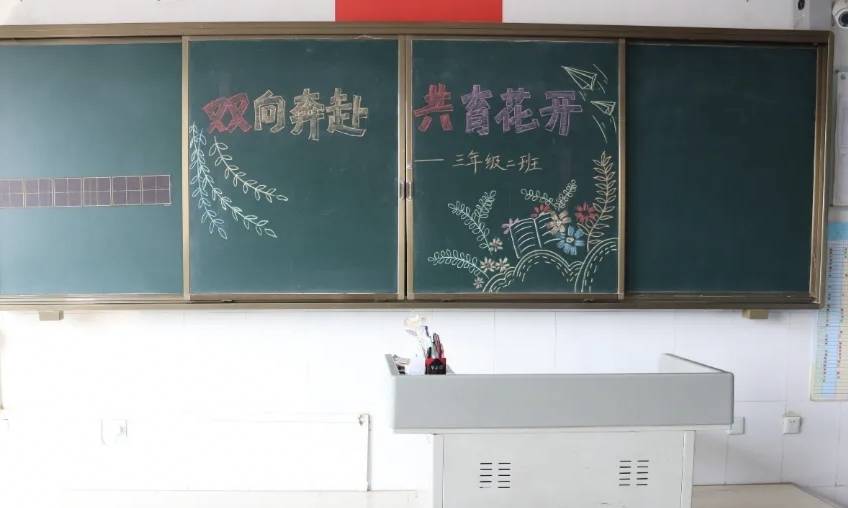 双向奔赴 共育花开
—三年级二班